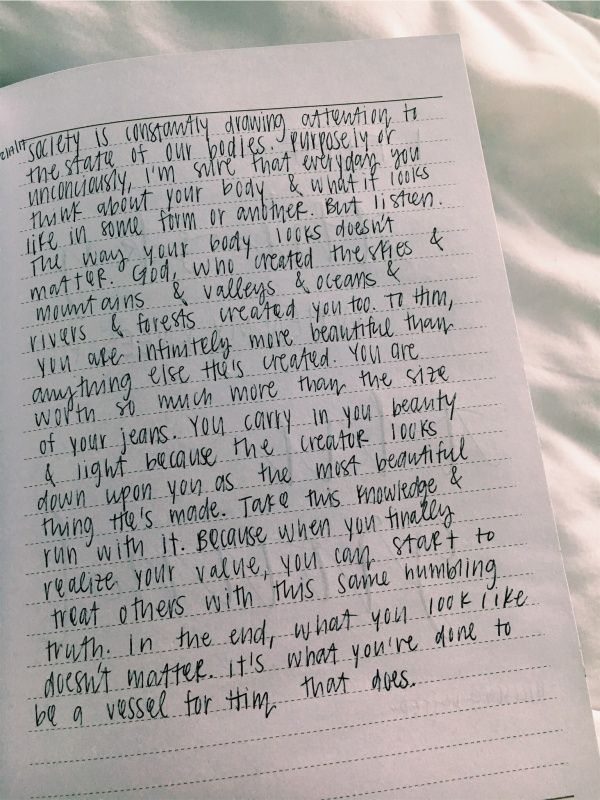 society is constantly drawing attention to
the state of our bodies. purposely or
unconciously, i'm sure that everyday you
think about your body & what it looks
like in some form or another. But listen.
The way your body looks doesn't
matter. God, who created the skies &
mountains & valleys & oceans &
rivers & forests created you too. To Him,
you are infinitely more beautiful than
anything else He's created. You are
worth so much more than the size
of your jeans. You carry in you beauty
& light because the creator looks
down upon you as the most beautiful
thing He's made. Take this knowledge &
run with it. Because when you finally
realize your value, you can start to
treat others with this same humbling
truth. in the end, what you look like
doesn't matter. it's what you've done to
be a vessel for Him that does.